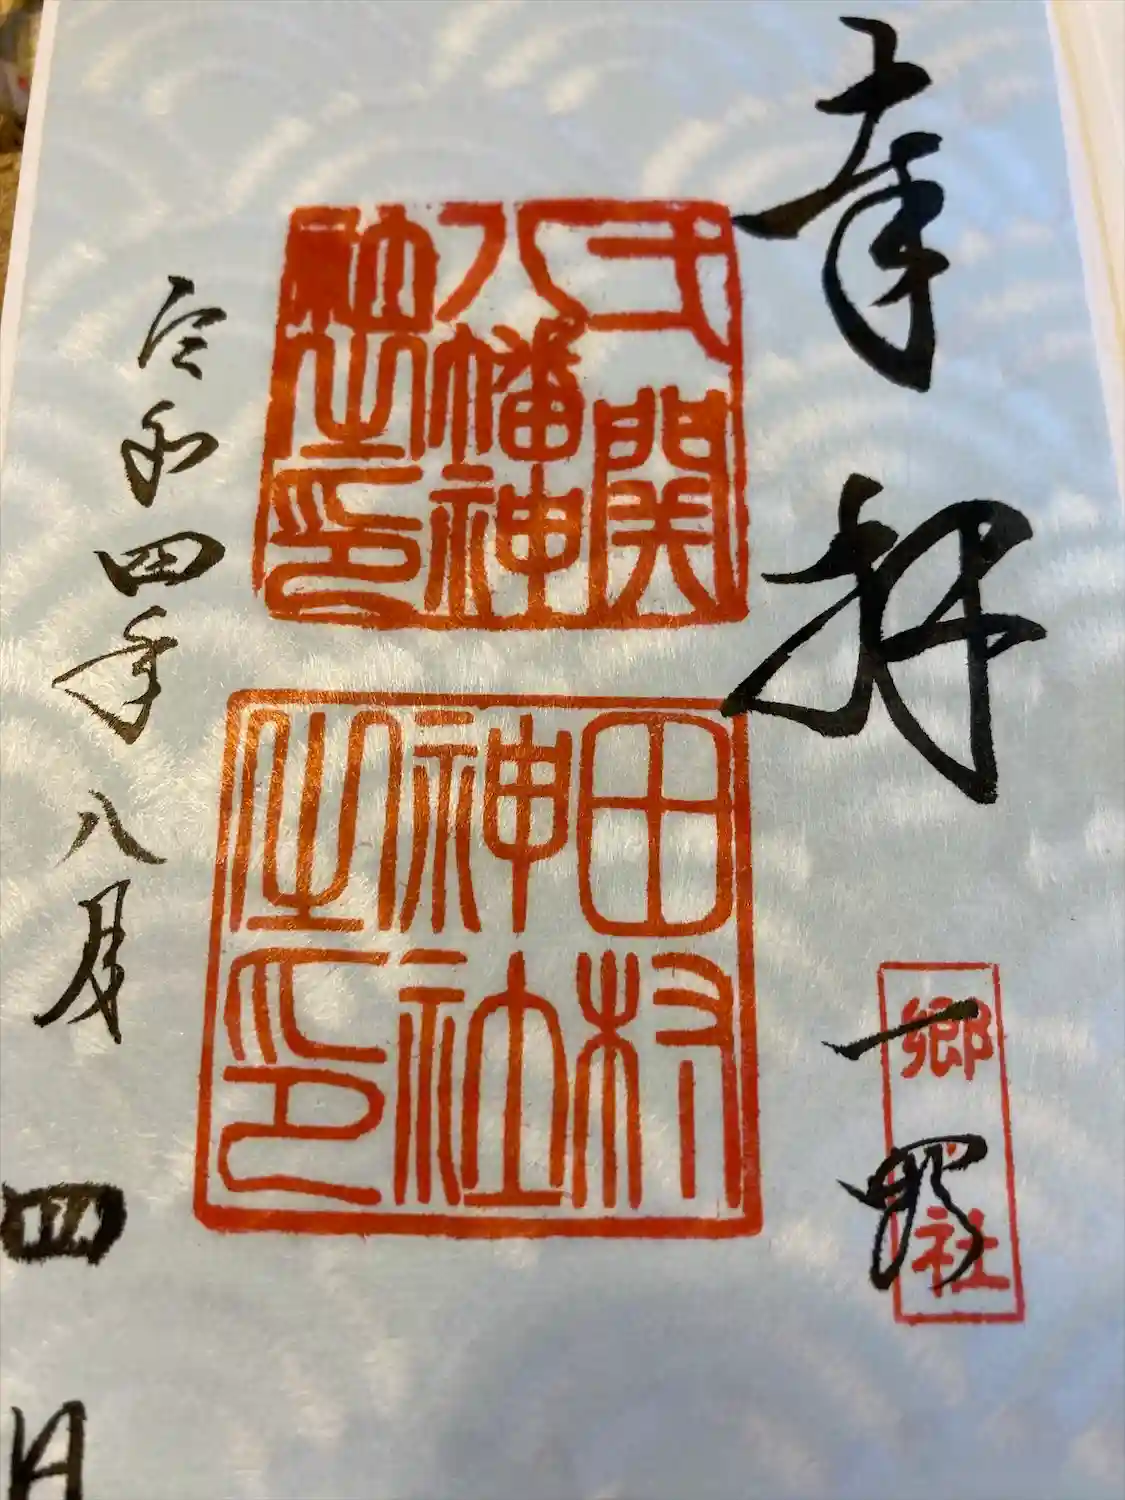 奉拝
一関
郷社
弌關八幡神社之印
田村神社之印
令和四年八月四日